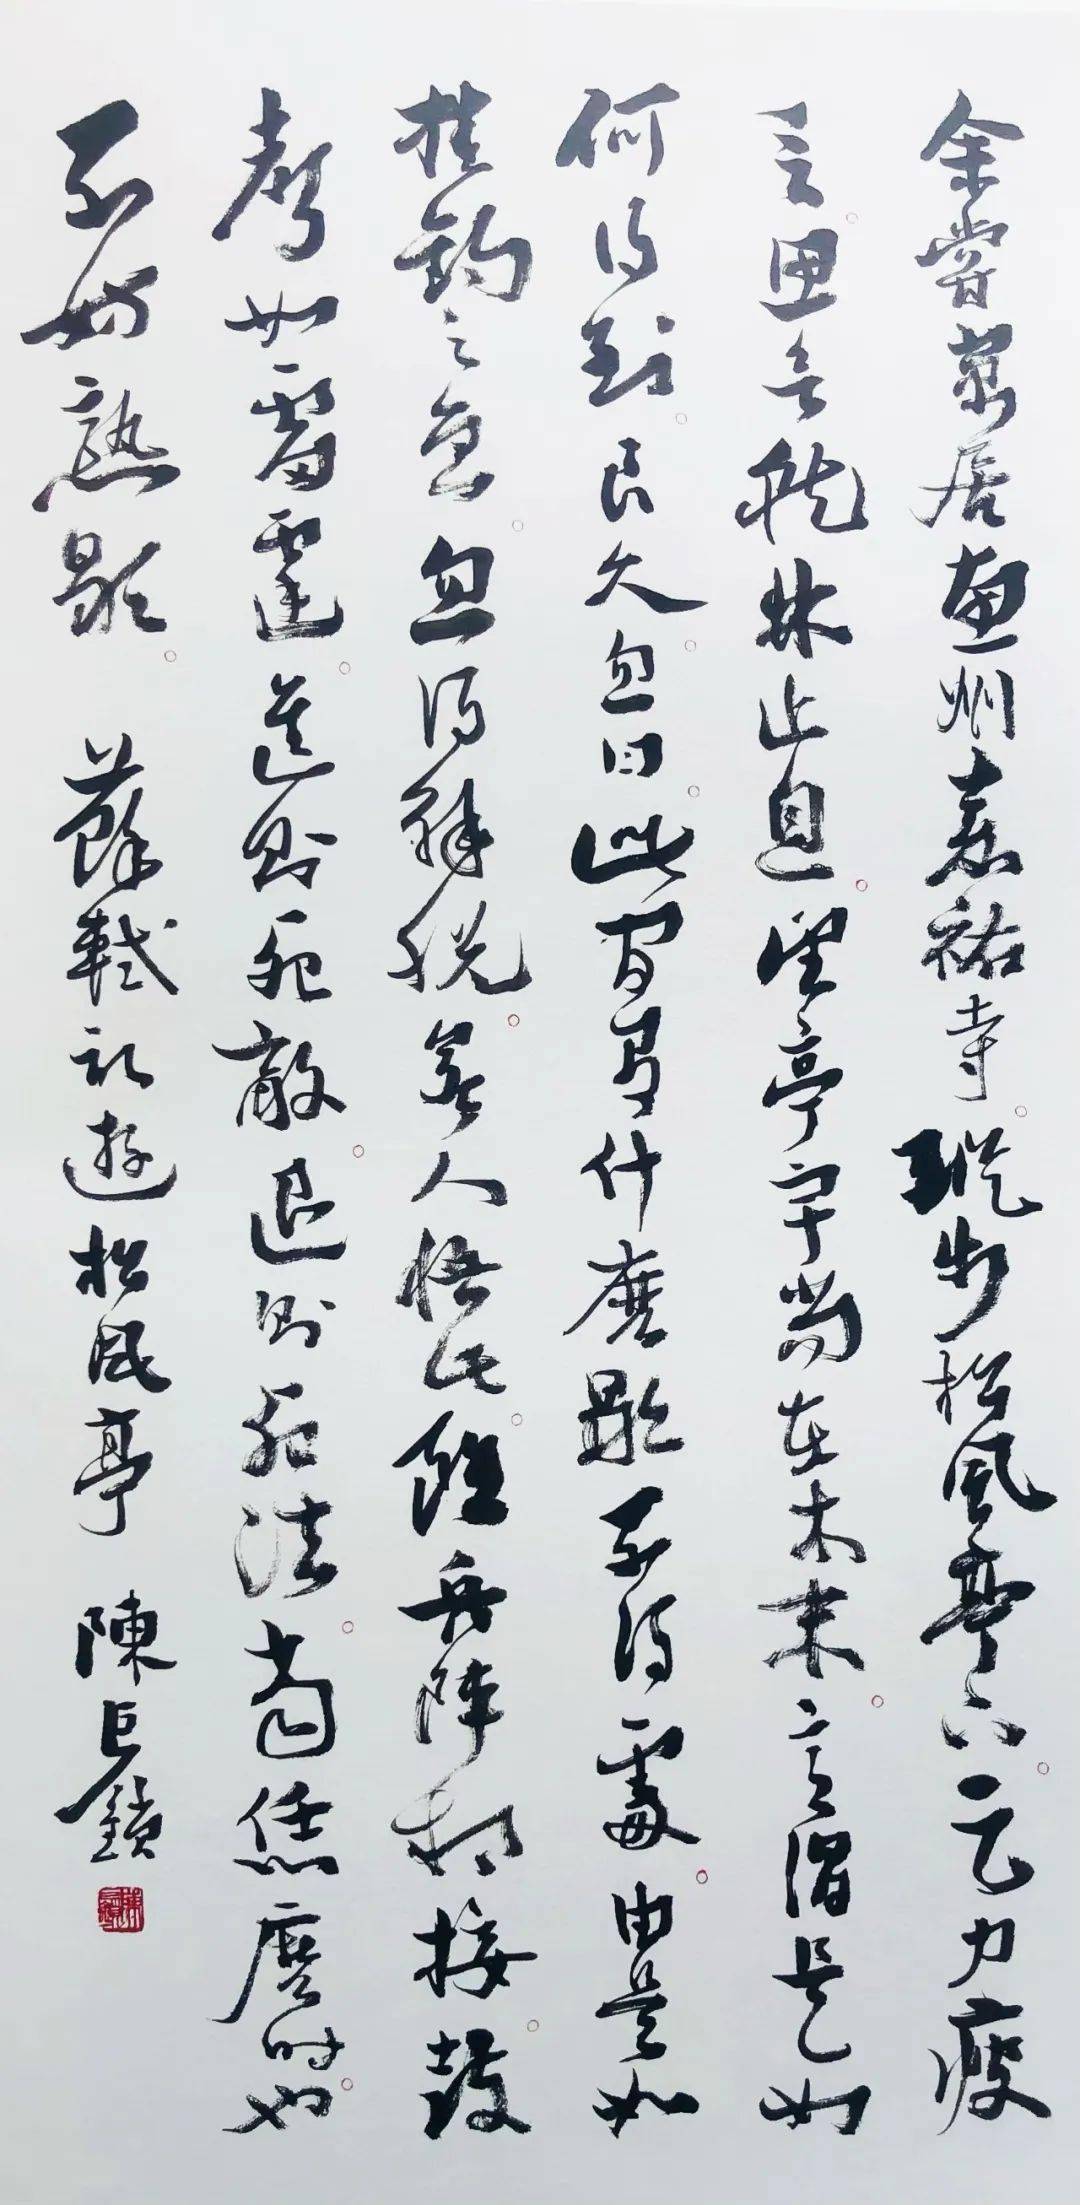 余嘗寓居惠州嘉祐寺縱步松風亭下足力疲
乏思欲就林止息望亭宇尚在木末意謂是如
何得到良久忽曰此間有什麼歇不得處由是如
掛鉤之魚忽得解脫若人悟此雖兵陣相接鼓
聲如雷霆進則死敵退則死法當恁麼時也
不妨熟歇 蘇軾記遊松風亭 陳巨鎖